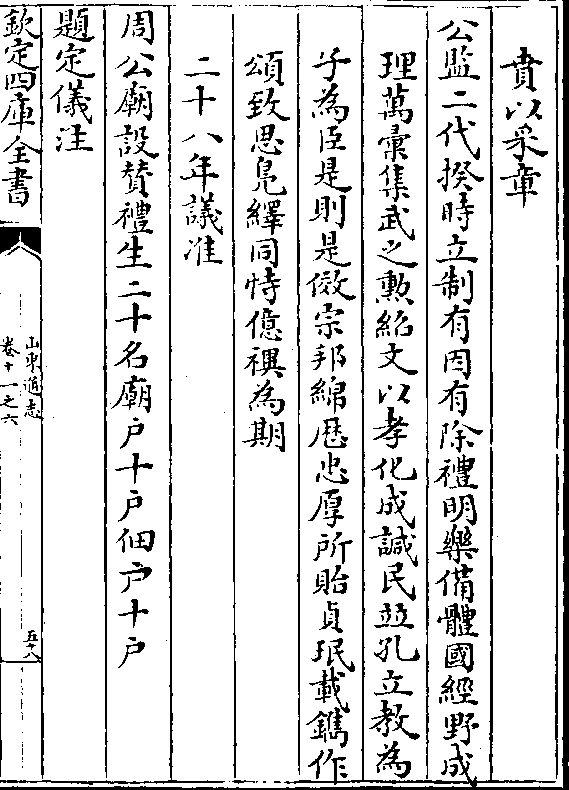 賁以采章
公監二代揆時立制有因有除禮明樂備體國經野成
理萬彚集武之勲紹文以孝化成諴民並孔立教為
子為臣是則是傚宗邦綿厯忠厚所貽貞珉載鐫作
頌致思鳬繹同恃億禩為期
二十八年議准
周公廟設賛禮生二十名廟戸十戸佃戸十戸
題定儀注
欽定四庫全書
山東通志
卷十一之六
五十八